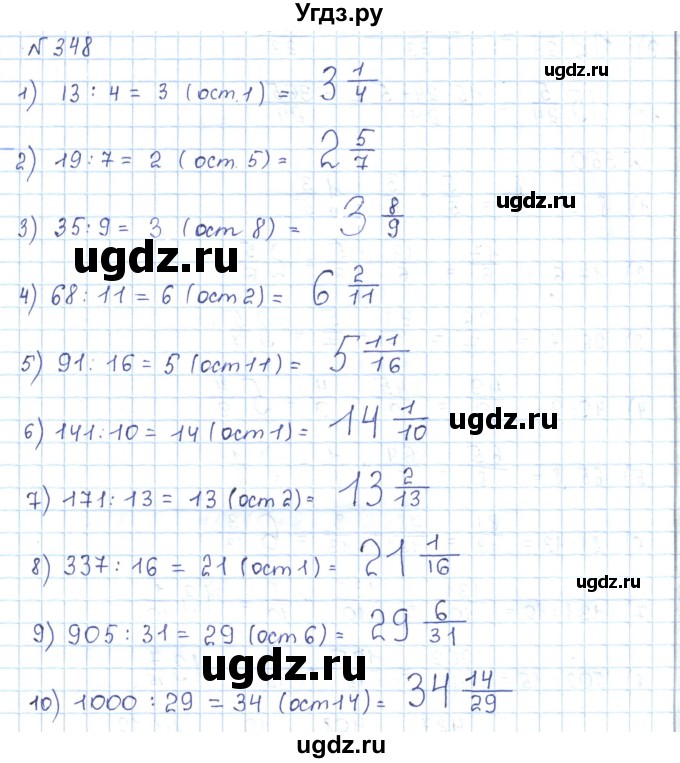 Угдз.ру
N 348
ugdz.ru
1) 13 : 4 = 3 (ост. 1) = 3 1/4
2) 19 : 7 = 2 (ост. 5) = 2 5/7
3) 35 : 9 = 3 (ост 8) = 3 8/9
ugdz.ru
ugdz.ru
4) 68 : 11 = 6 (ост 2) = 6 2/11
5) 91 : 16 = 5 (ост 11) = 5 11/16
6) 141 : 10 = 14 (ост 1) = 14 1/10
ugdz.ru
7) 171 : 13 = 13 (ост 2) = 13 2/13
8) 337 : 16 = 21 (ост 1) = 21 1/16
ugdz.ru
9) 905 : 31 = 29 (ост 6) = 29 6/31
ugdz.ru
10) 1000 : 29 = 34 (ост 14) = 34 14/29
ugdz.ru